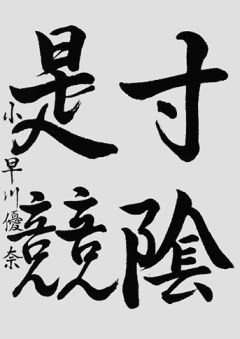 寸陰
是競
小八早川優奈